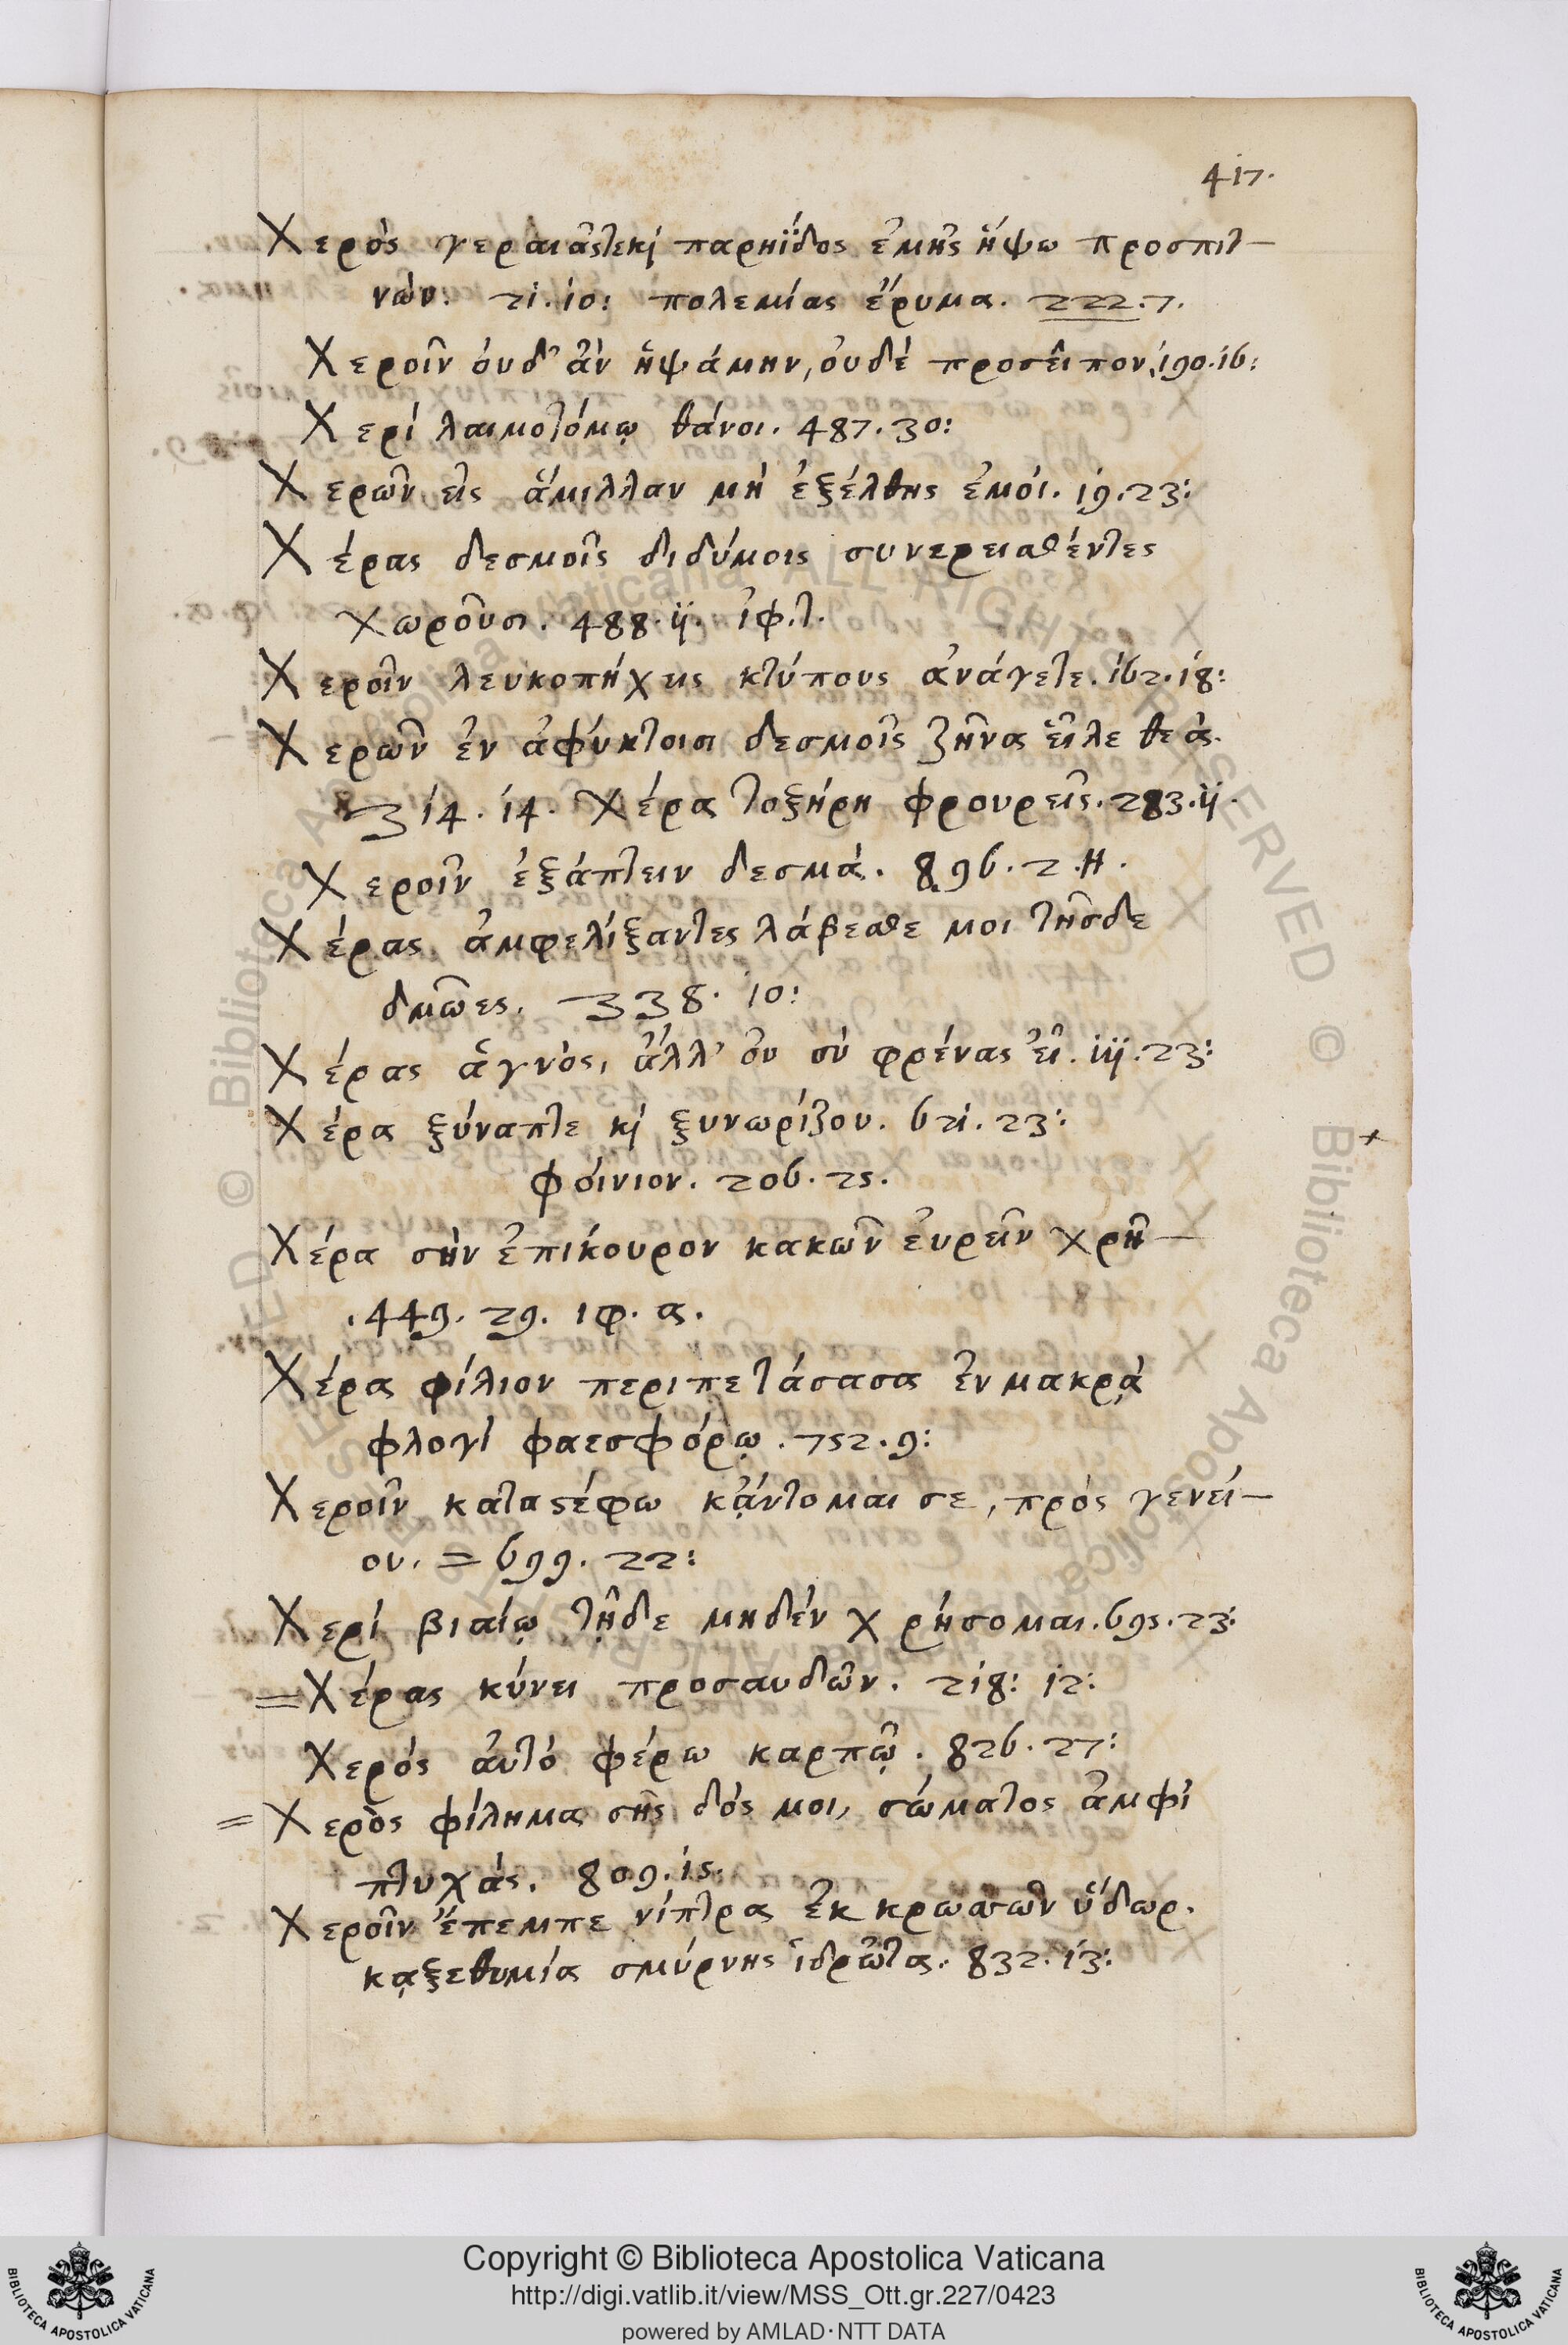 417.
Χερὸς γεραιᾶς τε κ̀ παρηΐδος ἐμῆς ἥψω προσπιτ-
νών. 21.10: πολεμίας ἔρυμα. 222.7.
Χεροῖν οὐδ' ἂν ἡψάμην, οὐδὲ προσεῖπον. 190.16:
Χερὶ λαιμοτόμῳ θάνοι. 487.30:
Χερῶν εἰς ἅμιλλαν μὴ ἐξέλθης ἐμοί. 19.23:
Χέρας δεσμοῖς διδύμοις συνερεισθέντες
χωροῦσι. 488.11. ἰφ.τ.
Χεροῖν λευκοπήχεις κτύπους ἀνάγετε. 162.18:
Χερῶν ἐν ἀφύκτοισι δεσμοῖς ζῆνα εἷλε θεάς.
314.14. Χέρα τοξήρη φρουρεῖς. 283.11.
Χεροῖν ἐξάπτειν δεσμά. 896.2.Η.
Χέρας ἀμφελίξαντες λάβεσθε μοι τῆσδε
δμῶες. 338.10:
Χέρας ἁγνὸς, ἀλλ' οὐ σὺ φρένας εἶ. 111.23:
Χέρα ξύναπτε κ̀ ξυνωρίζου. 621.23:
φοίνιον. 206.25.
Χέρα σὴν ἐπίκουρον κακῶν εὑρεῖν χρῆ-
.449.29. ιφ.α.
Χέρα φίλιον περιπετάσασα ἐν μακρᾷ
φλογὶ φαεσφόρῳ. 752.9:
Χεροῖν καταστέφω κᾄντομαι σε, πρὸς γενεί-
ου. = 699.22:
Χερὶ βιαίῳ τῇδε μηδὲν χρήσομαι. 695.23:
= Χέρας κύνει προσαυδῶν. 218: 12:
Χερὸς αὐτὸ φέρω καρπῷ. 826.27:
= Χερὸς φίλημα σῆς δός μοι, σώματος ἀμφὶ
πτυχάς. 809.15.
Χεροῖν ἔπεμπε νίπτρα ἐκ κρωσσῶν ὕδωρ.
κᾳξεθυμία σμύρνης ἱδρῶτα. 832.13:
Copyright © Biblioteca Apostolica Vaticana
http://digi.vatlib.it/view/MSS_Ott.gr.227/0423
powered by AMLAD·NTT DATA